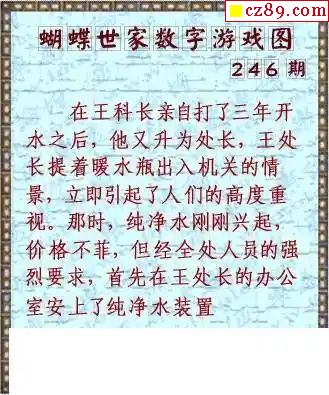 cz89.com
蝴蝶世家数字游戏图
246期
在王科长亲自打了三年开
水之后，他又升为处长，王处
长提着暖水瓶出入机关的情
景，立即引起了人们的高度重
视。那时，纯净水刚刚兴起，
价格不菲，但经全处人员的强
烈要求，首先在王处长的办公
室安上了纯净水装置